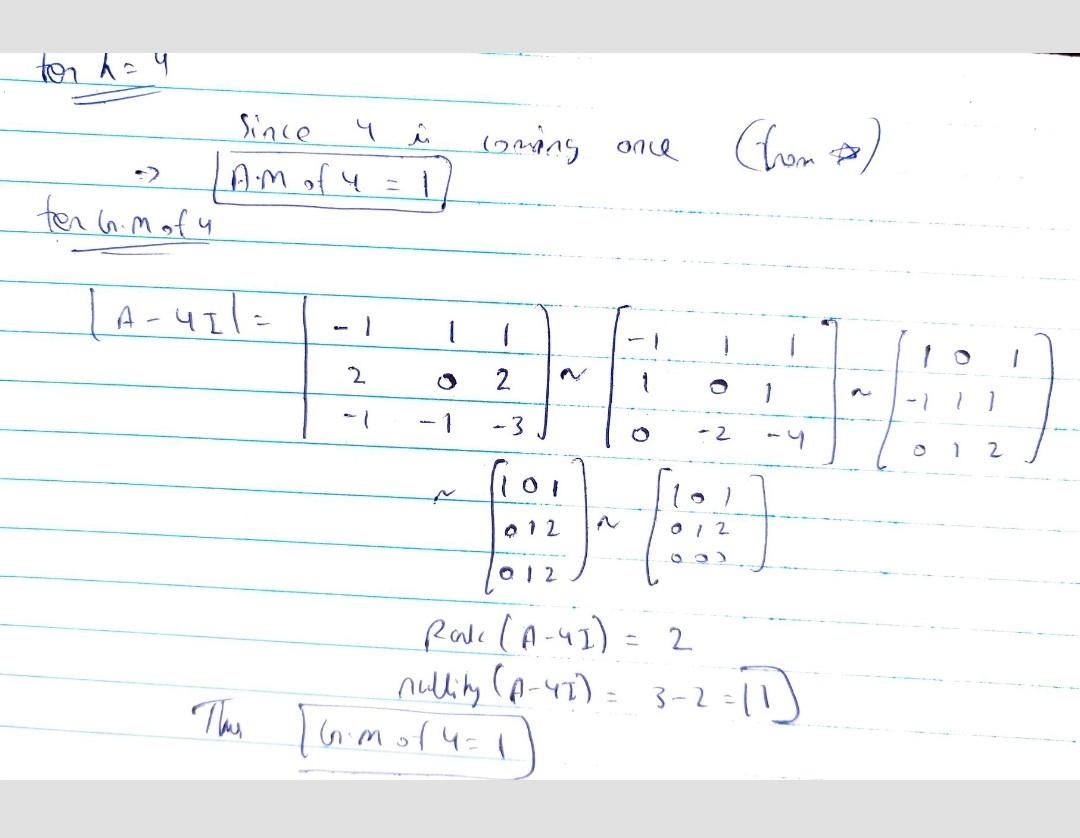 for λ = 4
Since 4 is coming once (from ☆)
⇒ A.M of 4 = 1
for G.M of 4
|A - 4I| = [-1 1 1; 2 0 2; -1 -1 -3] ~ [-1 1 1; 1 0 1; 0 -2 -4] ~ [1 0 1; -1 1 1; 0 1 2]
~ [1 0 1; 0 1 2; 0 1 2] ~ [1 0 1; 0 1 2; 0 0 0]
Rank (A-4I) = 2
nullity (A-4I) = 3-2 = 1
Thus G.M of 4 = 1